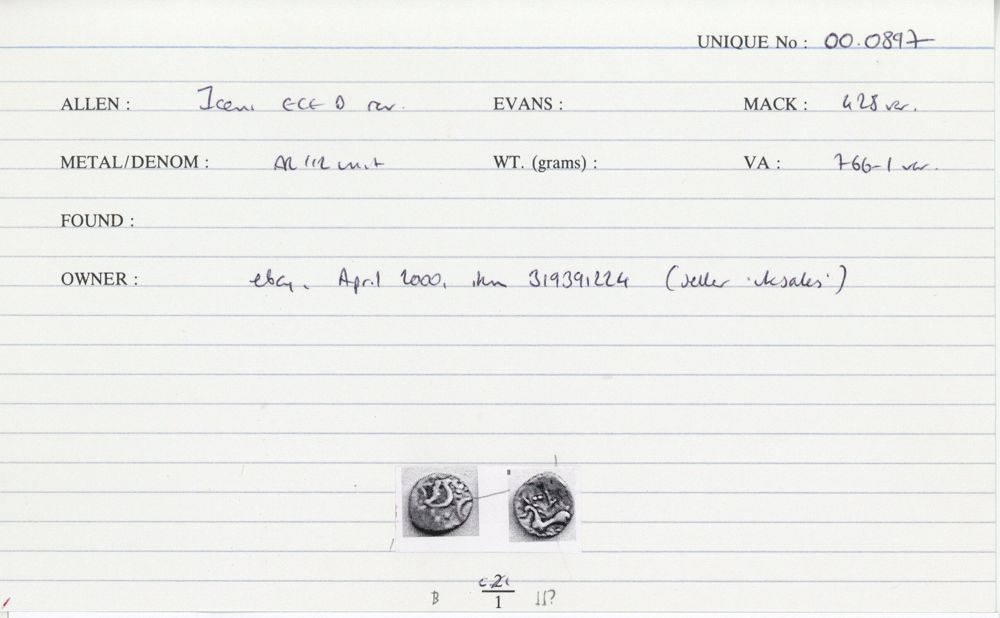 UNIQUE No : 00.0897
ALLEN : Iceni ECE D var. EVANS : MACK : 428 var.
METAL/DENOM : AR unit WT. (grams) : VA : 766-1 var.
FOUND :
OWNER : ebay, April 2000, item 319391224 (seller 'uksales')
1
B II?